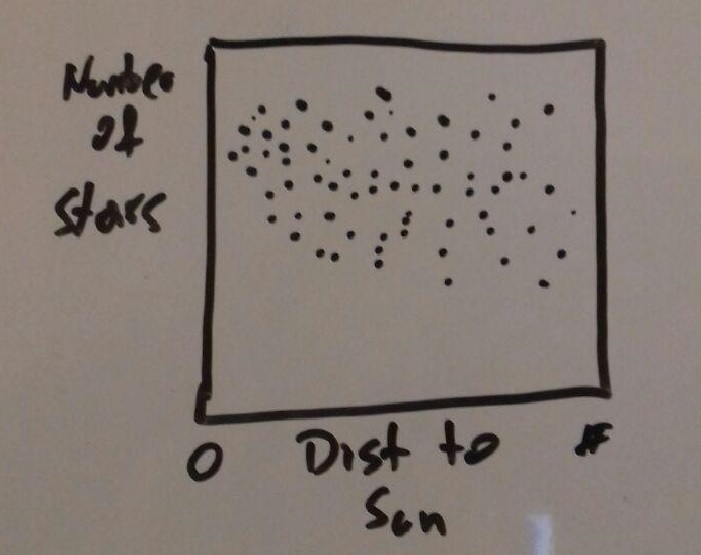 Number
of
stars
0 Dist to #
Sun